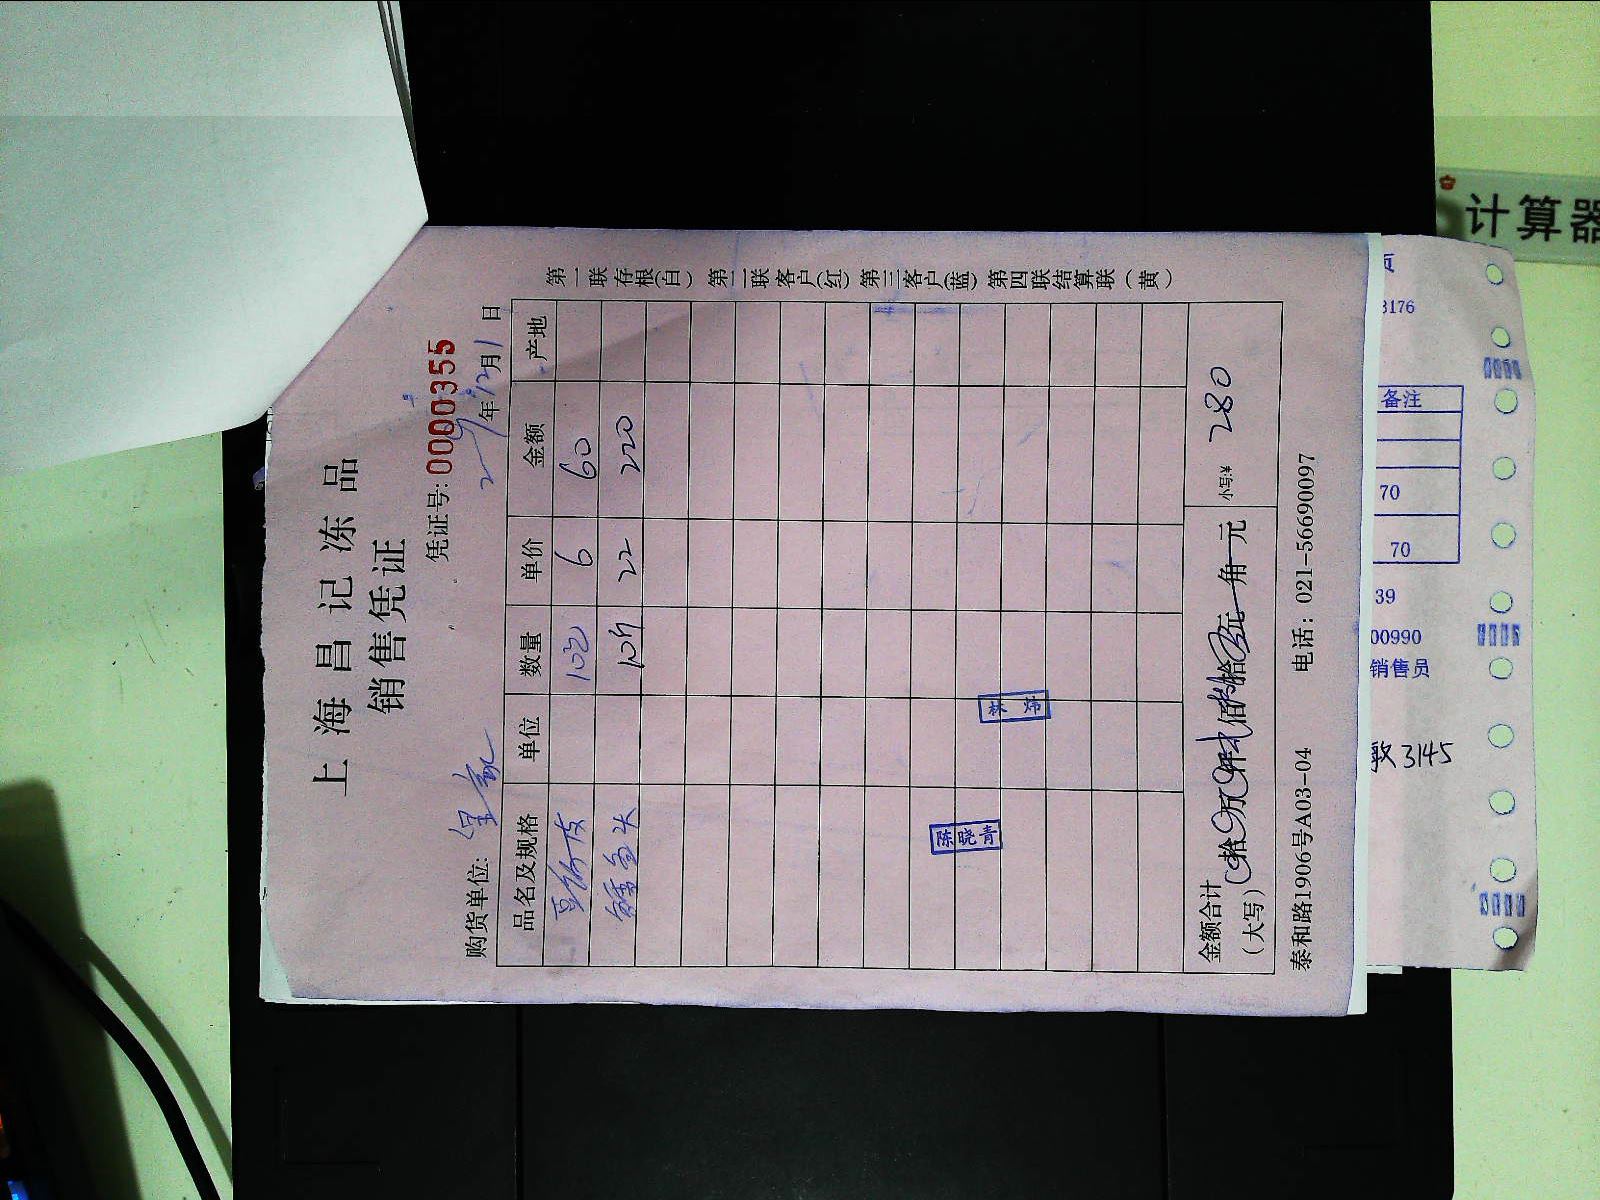 上海昌记冻品
销售凭证
凭证号: 0000355
购货单位: 年12月1日
品名及规格 单位 数量 单价 金额 产地
10包 6 60
10斤 22 220
陈晓青
林炜
金额合计
(大写) 拾 万 仟 佰 拾 元 角 元 小写:¥ 280
泰和路1906号A03-04 电话: 021-56690097
第一联存根(白) 第二联客户(红) 第三客户(蓝) 第四联结算联(黄)
计算器
页
3176
备注
70
70
39
00990
销售员
3145